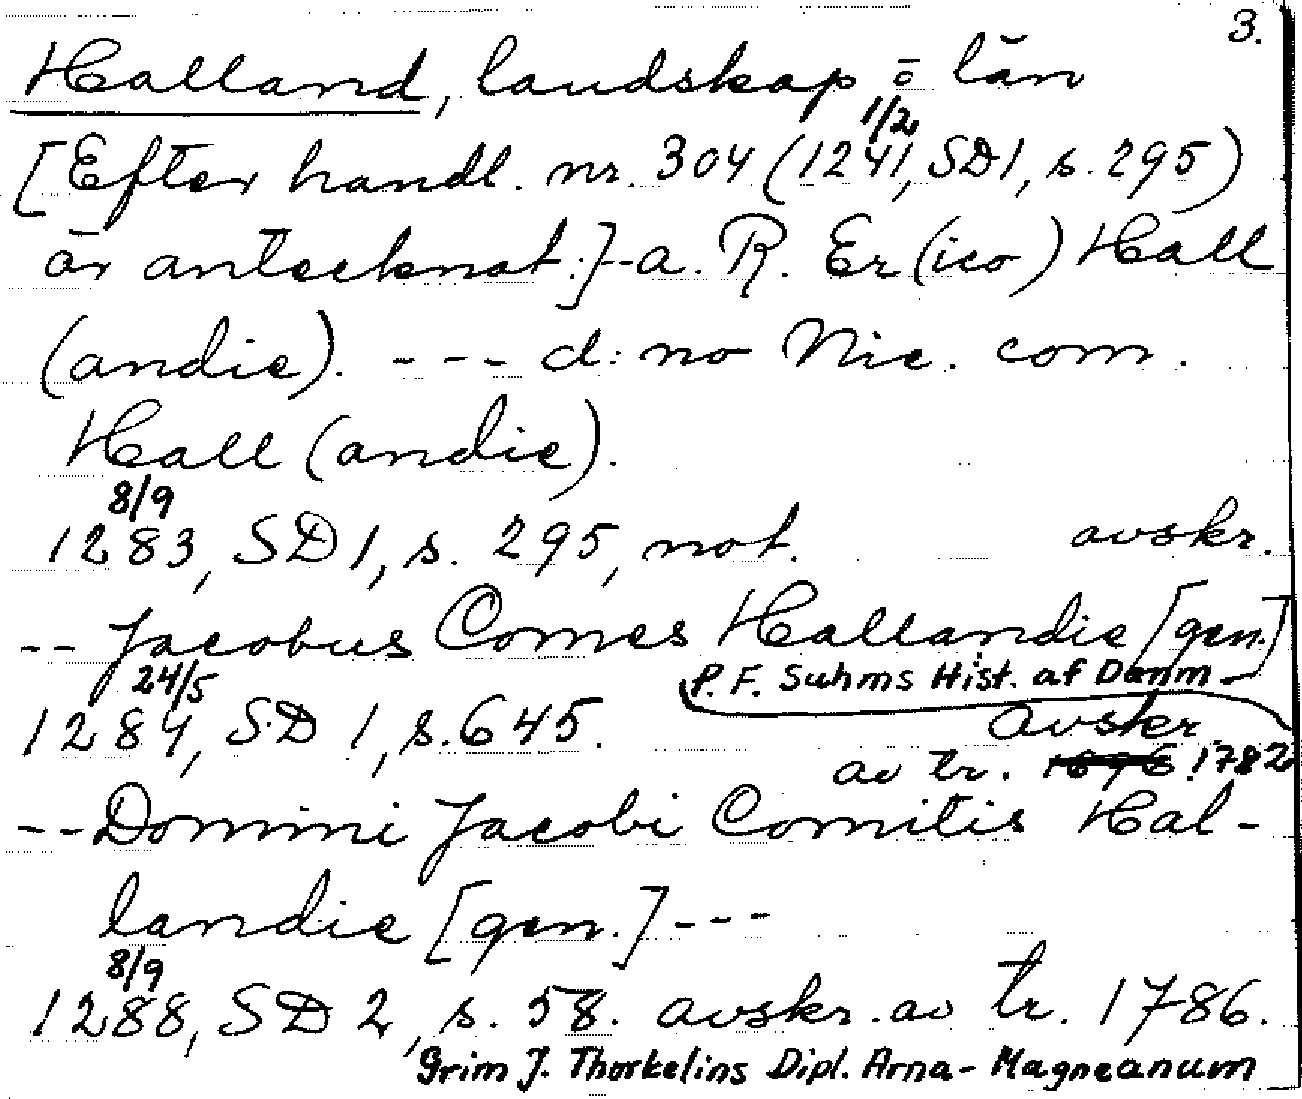 3.
Halland, landskap o län
1/2
[Efter handl. nr. 304 (1241, SD1, s. 295)
är antecknat:] - a. R. Er(ico) Hall
(andie). --- d:no Nic. com.
Hall (andie).
8/9
1283, SD 1, s. 295, not. avskr.
-- Jacobus Comes Hallandie [gen.]
24/5 P. F. Suhms Hist. af Danm.
1284, SD 1, s. 645. avskr
av tr. 1696 1782
-- Domini Jacobi Comitis Hal-
landie [gen.] ---
8/9
1288, SD 2, s. 58. avskr. av tr. 1786.
Grim J. Thorkelins Dipl. Arna-Magneanum